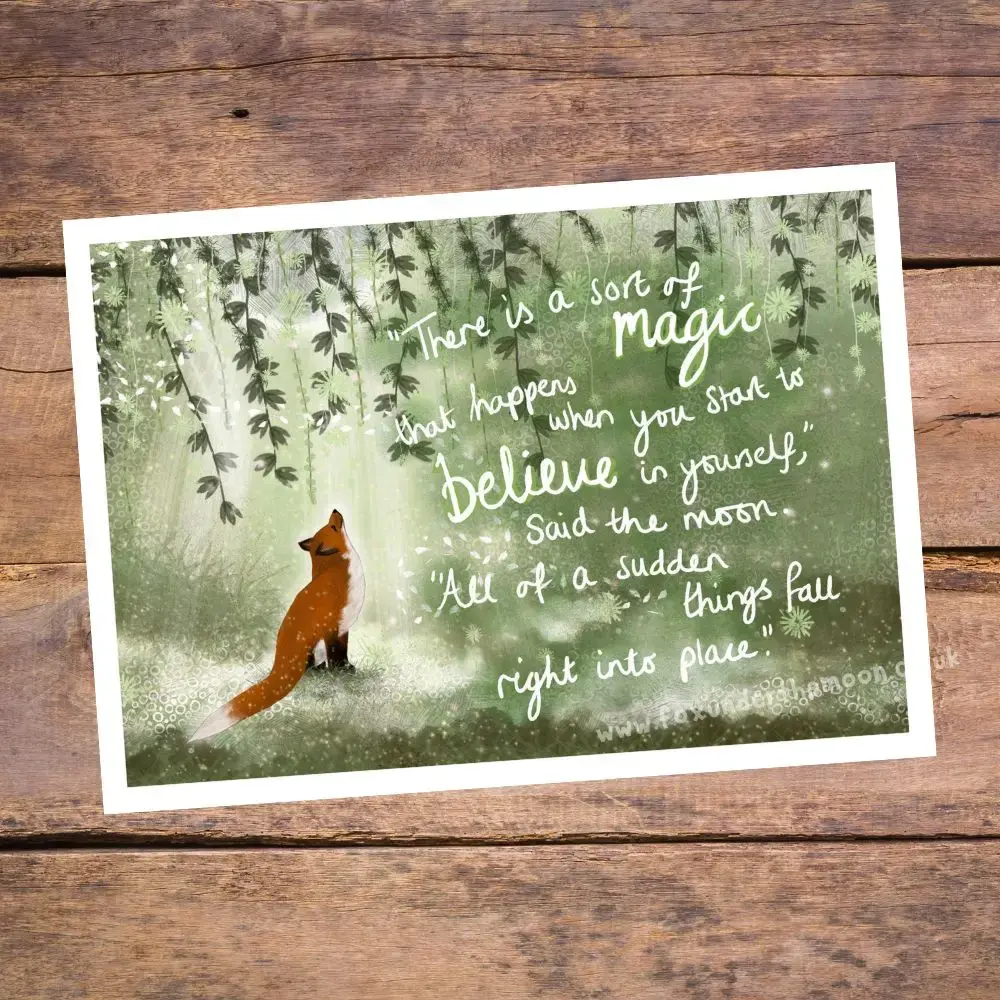 "There is a sort of
magic
that happens
when you start to
believe in yourself,"
Said the moon.
"All of a sudden
things fall
right into place."
www.foxunderthemoon.co.uk